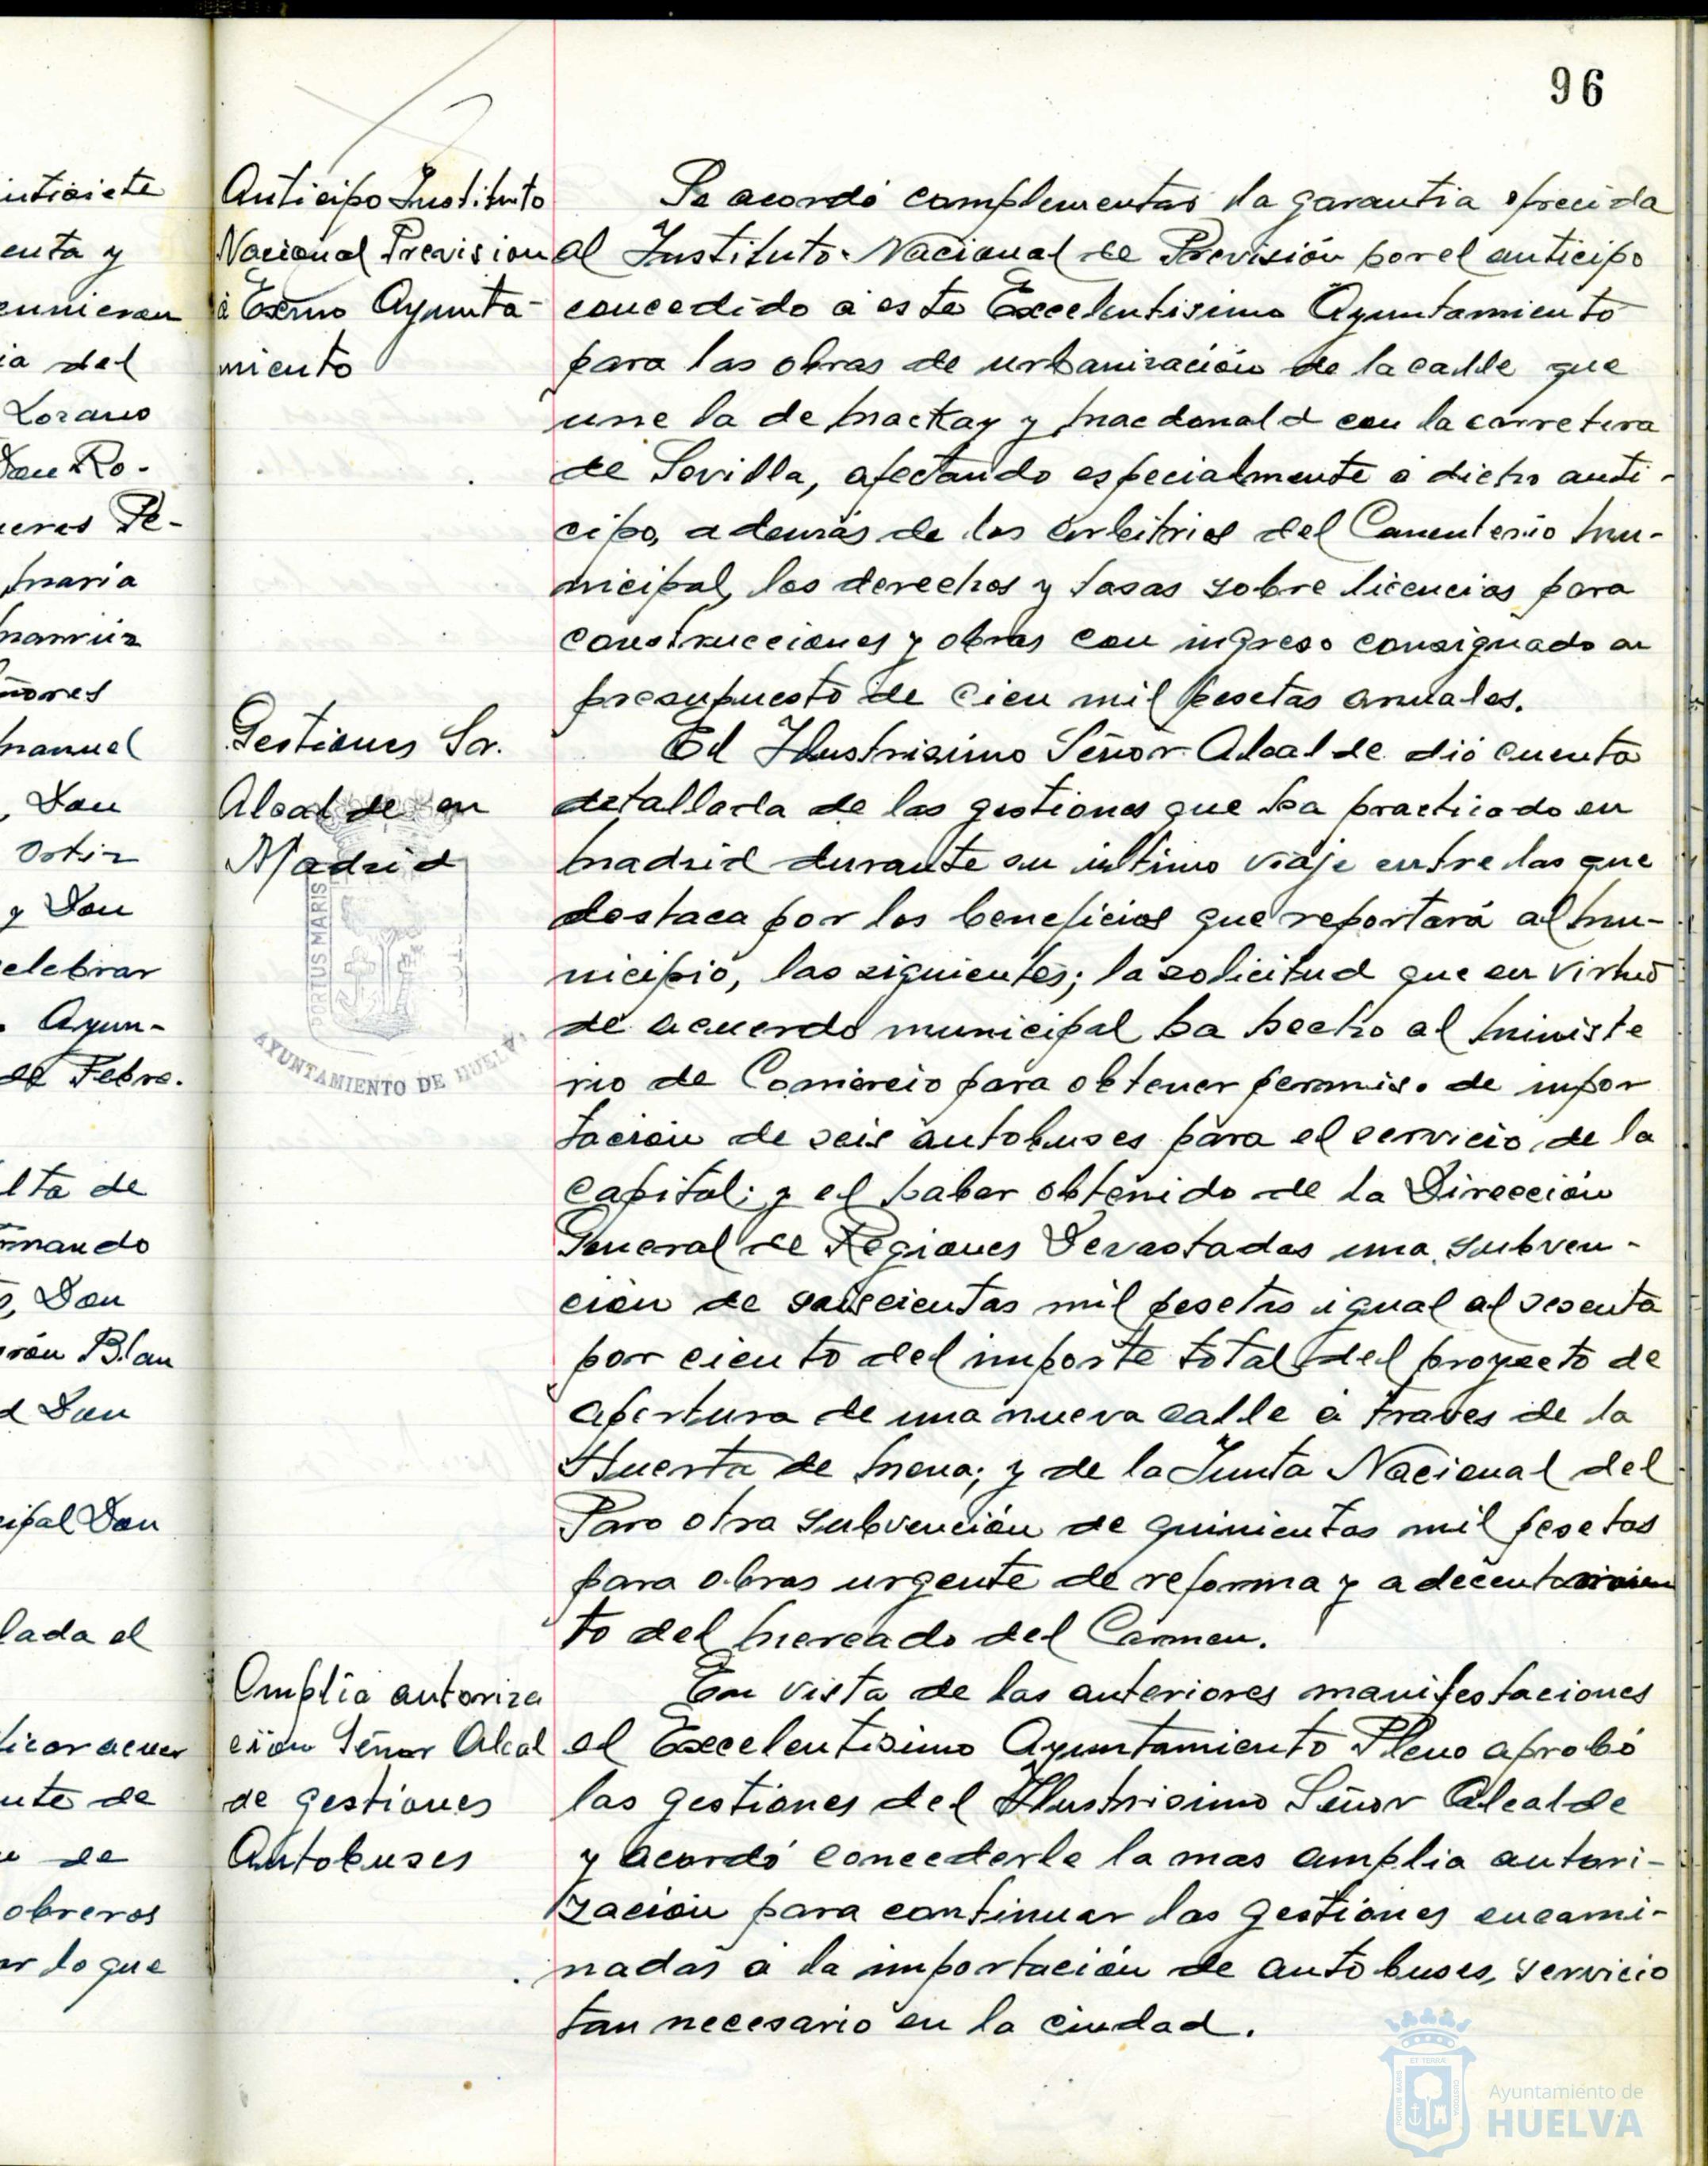 96
intisiete
enta y
eunieran
ia del
Lozano
Don Ro-
ueres Pe-
maria
ñores
manuel
, Don
Ortiz
y Don
elebrar
. Ayun-
de Febre.
lta de
rnando
, Don
rón Blan
d Don
cipal Don
lada el
ticar acuer
nte de
de
obreros
ar lo que
Anticipo Instituto
Nacional Prevision
á Excmo Ayunta-
miento
Se acordó complementar la garantia ofrecida
al Instituto Nacional de Previsión por el anticipo
concedido á este Excelentisimo Ayuntamiento
para las obras de urbanización de la calle que
une la de Mackay y Macdonald con la carretera
de Sevilla, afectando especialmente á dicho anti-
cipo, además de los arbitrios del Cementerio Mu-
nicipal, los derechos y tasas sobre licencias para
construcciones y obras con ingreso consignado en
presupuesto de cien mil pesetas anuales.
Gestiones Sr.
Alcalde en
Madrid
PORTUS MARIS
AYUNTAMIENTO DE HUELVA
El Ilustrisimo Señor Alcalde dió cuenta
detallada de las gestiones que ha practicado en
Madrid durante su último viaje entre las que
destaca por los beneficios que reportará al Mu-
nicipio, las siguientes; la solicitud que en virtud
de acuerdo municipal ha hecho al Ministe
rio de Comercio para obtener permiso de impor
tación de seis autobuses para el servicio de la
capital; y el haber obtenido de la Dirección
General de Regiones Devastadas una subven-
ción de seiscientas mil pesetas igual al sesenta
por ciento del importe total del proyecto de
apertura de una nueva calle á traves de la
Huerta de Mena; y de la Junta Nacional del
Paro otra subvención de quinientas mil pesetas
para obras urgente de reforma y adecentamien
to del Mercado del Carmen.
Amplia autoriza
ción Señor Alcal
de gestiones
Autobuses
En vista de las anteriores manifestaciones
el Excelentisimo Ayuntamiento Pleno aprobó
las gestiones del Ilustrisimo Señor Alcalde
y acordó concederle la mas amplia autori-
zación para continuar las gestiones encami-
nadas á la importación de autobuses, servicio
tan necesario en la ciudad.
Ayuntamiento de
HUELVA